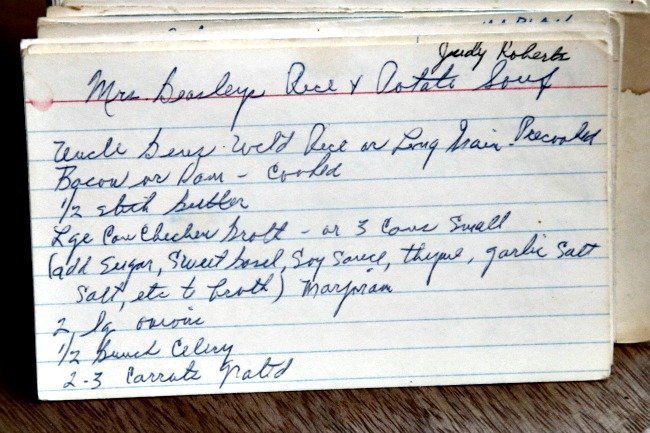 Judy Roberts
Mrs Beasleys Rice & Potato Soup
Uncle Bens Wild Rice or Long Grain - Precooked
Bacon or Ham - cooked
1/2 stick butter
Lge Can Chicken Broth - or 3 cans small
(add sugar, sweet basel, soy sauce, thyme, garlic salt
salt, etc to broth) Marjoram
2 lg onions
1/2 Bunch Celery
2-3 Carrots grated